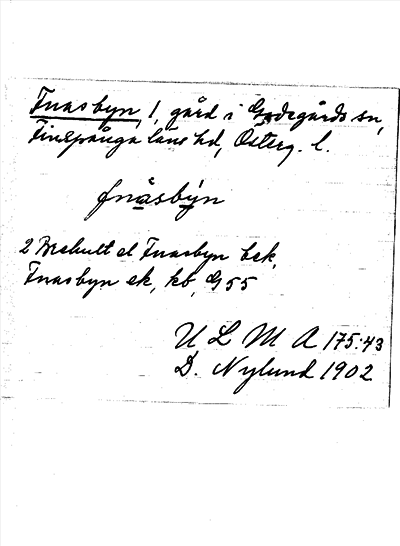 Fnasbyn, 1, gård i Godegårds sn,
Finspånga läns hd, Österg. l.
fnåsbýn
2 Brehult el Fnasbyn bek,
Fnasbyn ek, kb, G 55
U L M A 175:43
D. Nylund 1902